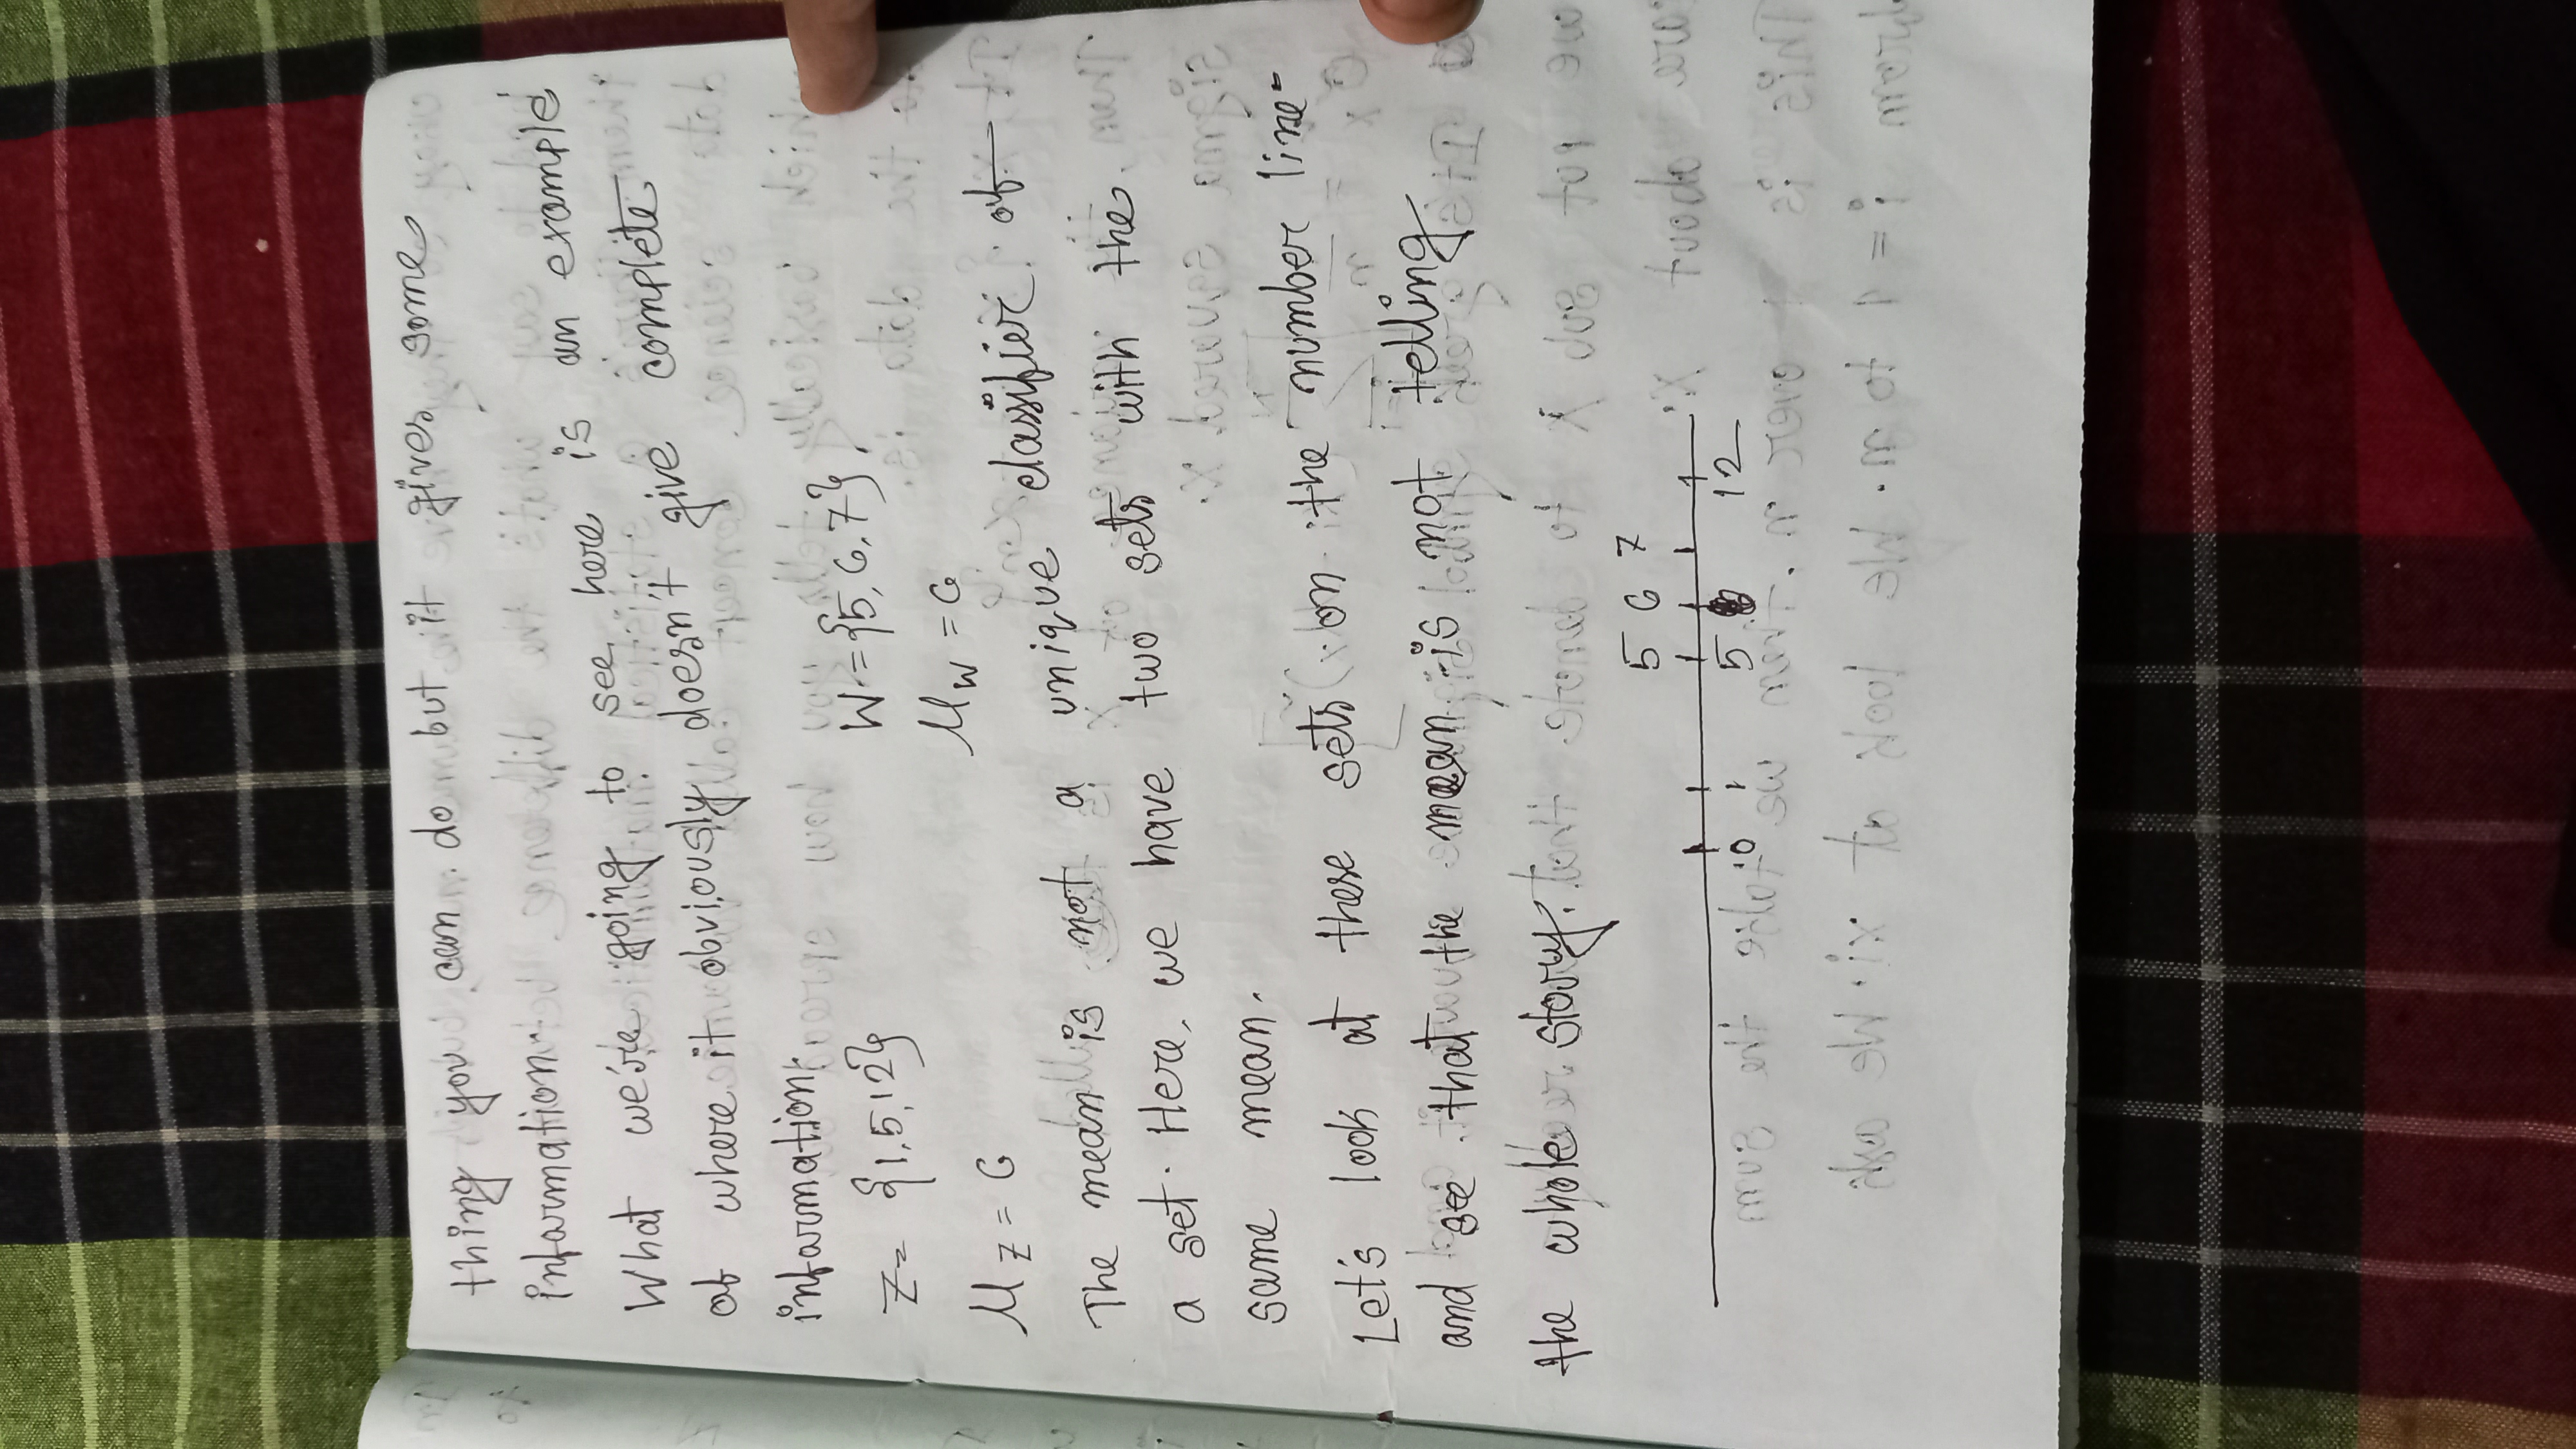 thing you can do but it gives some
information.
What we're going to see here is an example
of where it obviously doesn't give complete
information.
Z = {1,5,12}
W = {5,6,7}
μz = 6
μw = 6
The mean is not a unique classifier of
a set. Here, we have two sets with the
same mean.
Let's look at these sets on the number line-
and see that the mean is not telling
the whole story.
5 6 7
0 1 5 12